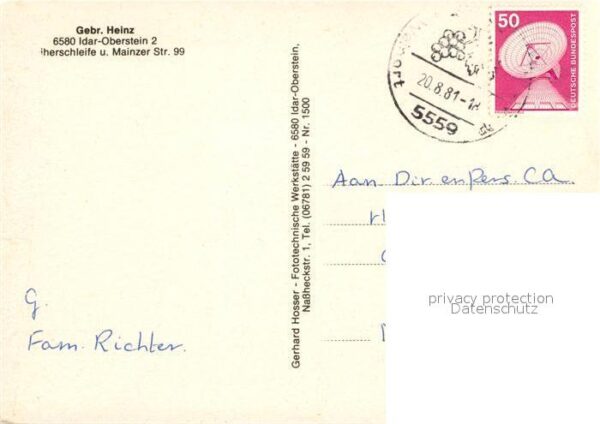 Gebr. Heinz
6580 Idar-Oberstein 2
herschleife u. Mainzer Str. 99
Gerhard Hosser - Fototechnische Werkstätte - 6580 Idar-Oberstein,
Naßheckstr. 1, Tel. (06781) 2 59 59 - Nr. 1500
20.8.81-18
5559
50
DEUTSCHE BUNDESPOST
Aan Dir. en Pers. CA
G.
Fam. Richter.
privacy protection
Datenschutz